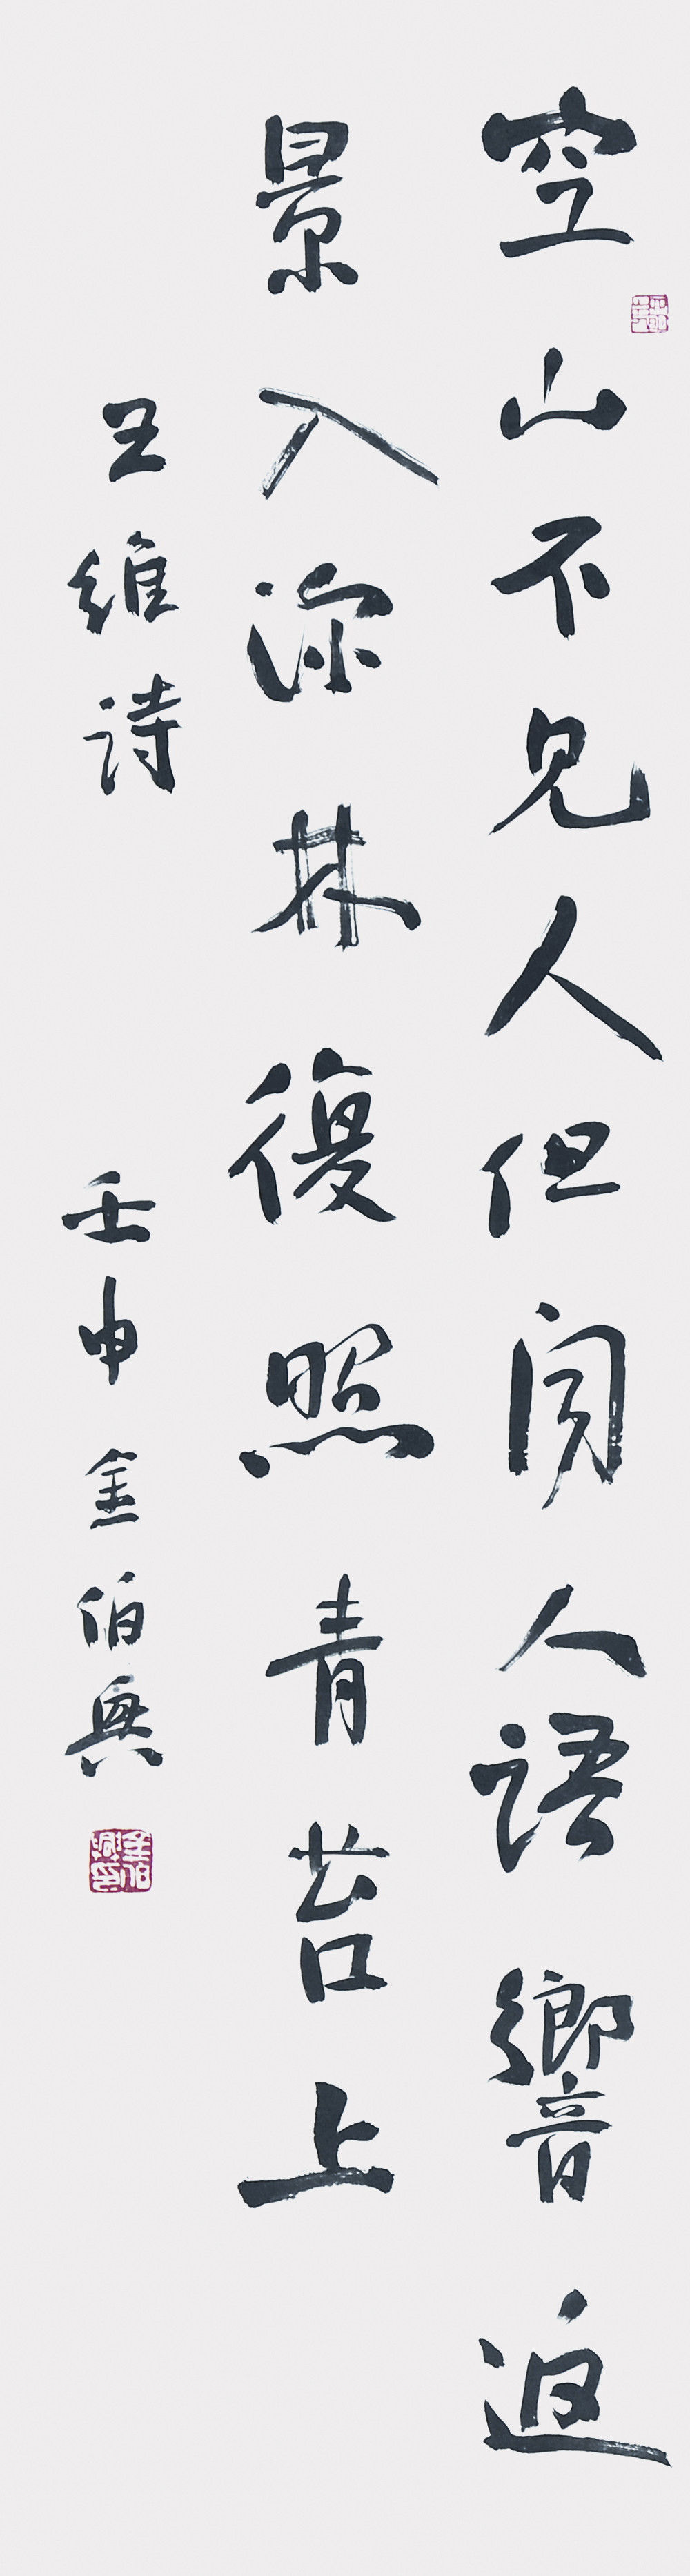 空山不見人但聞人語響返
景入深林復照青苔上
王維詩 壬申 金伯興